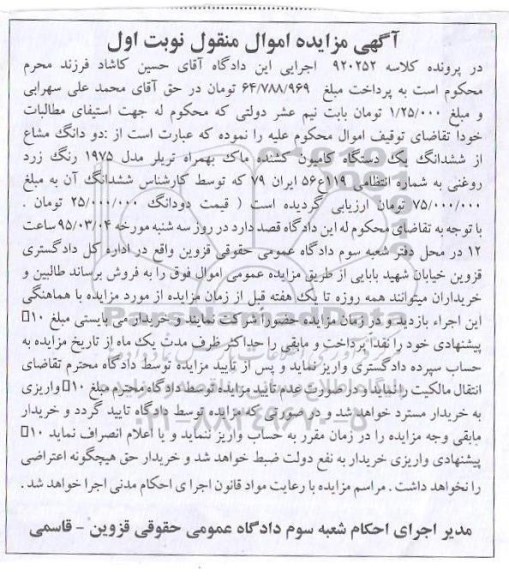 آگهی مزایده اموال منقول نوبت اول
در پرونده کلاسه ۹۲۰۲۵۲ اجرایی این دادگاه آقای حسین کاشاد فرزند محرم
محکوم است به پرداخت مبلغ ۶۴/۷۸۸/۹۶۹ تومان در حق آقای محمد علی سهرابی
و مبلغ ۱/۲۵/۰۰۰ تومان بابت نیم عشر دولتی که محکوم له جهت استیفای مطالبات
خودا تقاضای توقیف اموال محکوم علیه را نموده که عبارت است از :دو دانگ مشاع
از ششدانگ یک دستگاه کامیون کشنده ماک بهمراه تریلر مدل ۱۹۷۵ رنگ زرد
روغنی به شماره انتظامی ۱۱۹ع۵۶ ایران ۷۹ که توسط کارشناس ششدانگ آن به مبلغ
۷۵/۰۰۰/۰۰۰ تومان ارزیابی گردیده است ( قیمت دودانگ ۲۵/۰۰۰/۰۰۰ تومان .
با توجه به تقاضای محکوم له این دادگاه قصد دارد در روز سه شنبه مورخه ۹۵/۰۳/۰۴ ساعت
۱۲ در محل دفتر شعبه سوم دادگاه عمومی حقوقی قزوین واقع در اداره کل دادگستری
قزوین خیابان شهید بابایی از طریق مزایده عمومی اموال فوق را به فروش برساند طالبین و
خریداران میتوانند همه روزه تا یک هفته قبل از زمان مزایده از مورد مزایده با هماهنگی
این اجراء بازدید و در زمان مزایده حضورا شرکت نمایند و خریدار می بایستی مبلغ ۱۰
پیشنهادی خود را نقدا پرداخت و مابقی را حداکثر ظرف مدت یک ماه از تاریخ مزایده به
حساب سپرده دادگستری واریز نماید و پس از تایید مزایده توسط دادگاه محترم تقاضای
انتقال مالکیت را نماید و در صورت عدم تایید مزایده توسط دادگاه محترم مبلغ ۱۰ واریزی
به خریدار مسترد خواهد شد و در صورتی که مزایده توسط دادگاه تایید گردد و خریدار
مابقی وجه مزایده را در زمان مقرر به حساب واریز ننماید و یا اعلام انصراف نماید ۱۰
پیشنهادی واریزی خریدار به نفع دولت ضبط خواهد شد و خریدار حق هیچگونه اعتراضی
را نخواهد داشت . مراسم مزایده با رعایت مواد قانون اجرا ی احکام مدنی اجرا خواهد شد .
مدیر اجرای احکام شعبه سوم دادگاه عمومی حقوقی قزوین - قاسمی
ParsNamadData
۰۲۱-۸۸۳۴۹۶۷۰-۵